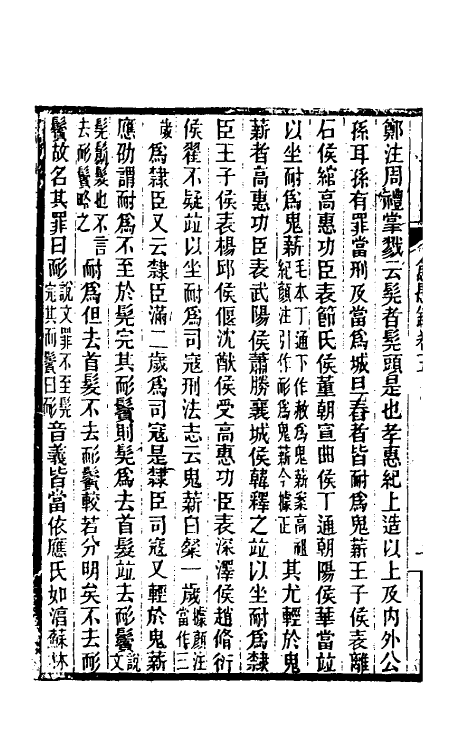 鄭注周禮掌戮云髡者髡頭是也孝惠紀上造以上及內外公
孫耳孫有罪當刑及當爲城旦舂者皆耐爲鬼薪王子侯表離
石侯綰高惠功臣表節氏侯董朝宣曲侯丁通朝陽侯華當竝
以坐耐爲鬼薪毛本丁通下作赦爲鬼薪案高祖紀顏注引作耏爲鬼薪今據正其尤輕於鬼
薪者高惠功臣表武陽侯蕭勝襄城侯韓釋之竝以坐耐爲隸
臣王子侯表楊邱侯偃沈猷侯受高惠功臣表深澤侯趙脩衍
侯翟不疑竝以坐耐爲司寇刑法志云鬼薪白粲一歲據顏注當作三
歲爲隸臣又云隸臣滿二歲爲司寇是隸臣司寇又輕於鬼薪
應劭謂耐爲不至於髡完其耏鬢則髡爲去首髮竝去耏鬢說文
髡鬄髮也不言去耏鬢略之耐爲但去首髮不去耏鬢較若分明矣不去耏
鬢故名其罪曰耏說文罪不至髡完其而鬢曰耏音義皆當依應氏如淳蘇林